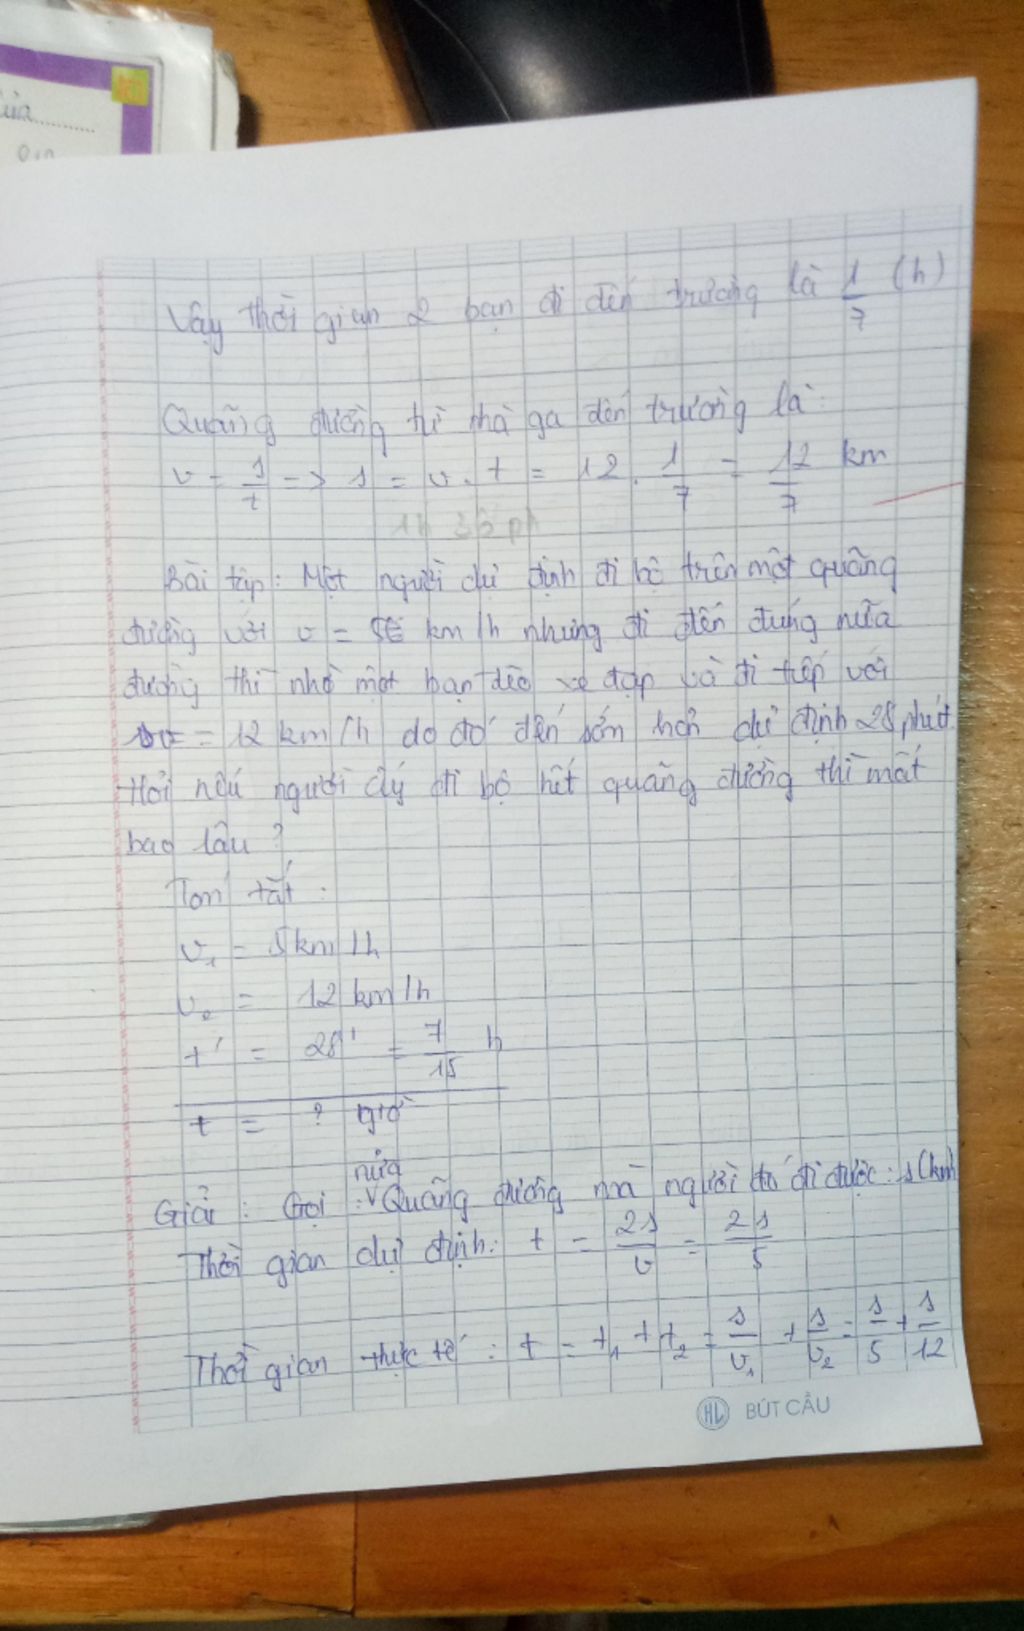 của..........
Vậy thời gian 2 bạn đi đến trường là 1/7 (h)
Quãng đường từ nhà ga đến trường là:
v = s/t => s = v. t = 12. 1/7 = 12/7 km
1h 36 ph
Bài tập: Một người dự định đi bộ trên một quãng
đường với v = 5 km/h nhưng đi đến đúng nữa
đường thì nhờ một bạn đèo xe đạp và đi tiếp với
v = 12 km/h do đó đến sớm hơn dự định 28 phút.
Hỏi nếu người ấy đi bộ hết quãng đường thì mất
bao lâu ?
Tóm tắt :
v₁ = 5km/h
v₂ = 12 km/h
t' = 28' = 7/15 h
t = ? giờ
nửa
Giải : Gọi : v Quãng đường mà người đó đi được : s (km)
Thời gian dự định: t = 2s/v = 2s/5
Thời gian thực tế : t = t₁ + t₂ = s/v₁ + s/v₂ = s/5 + s/12
HL BÚT CẦU